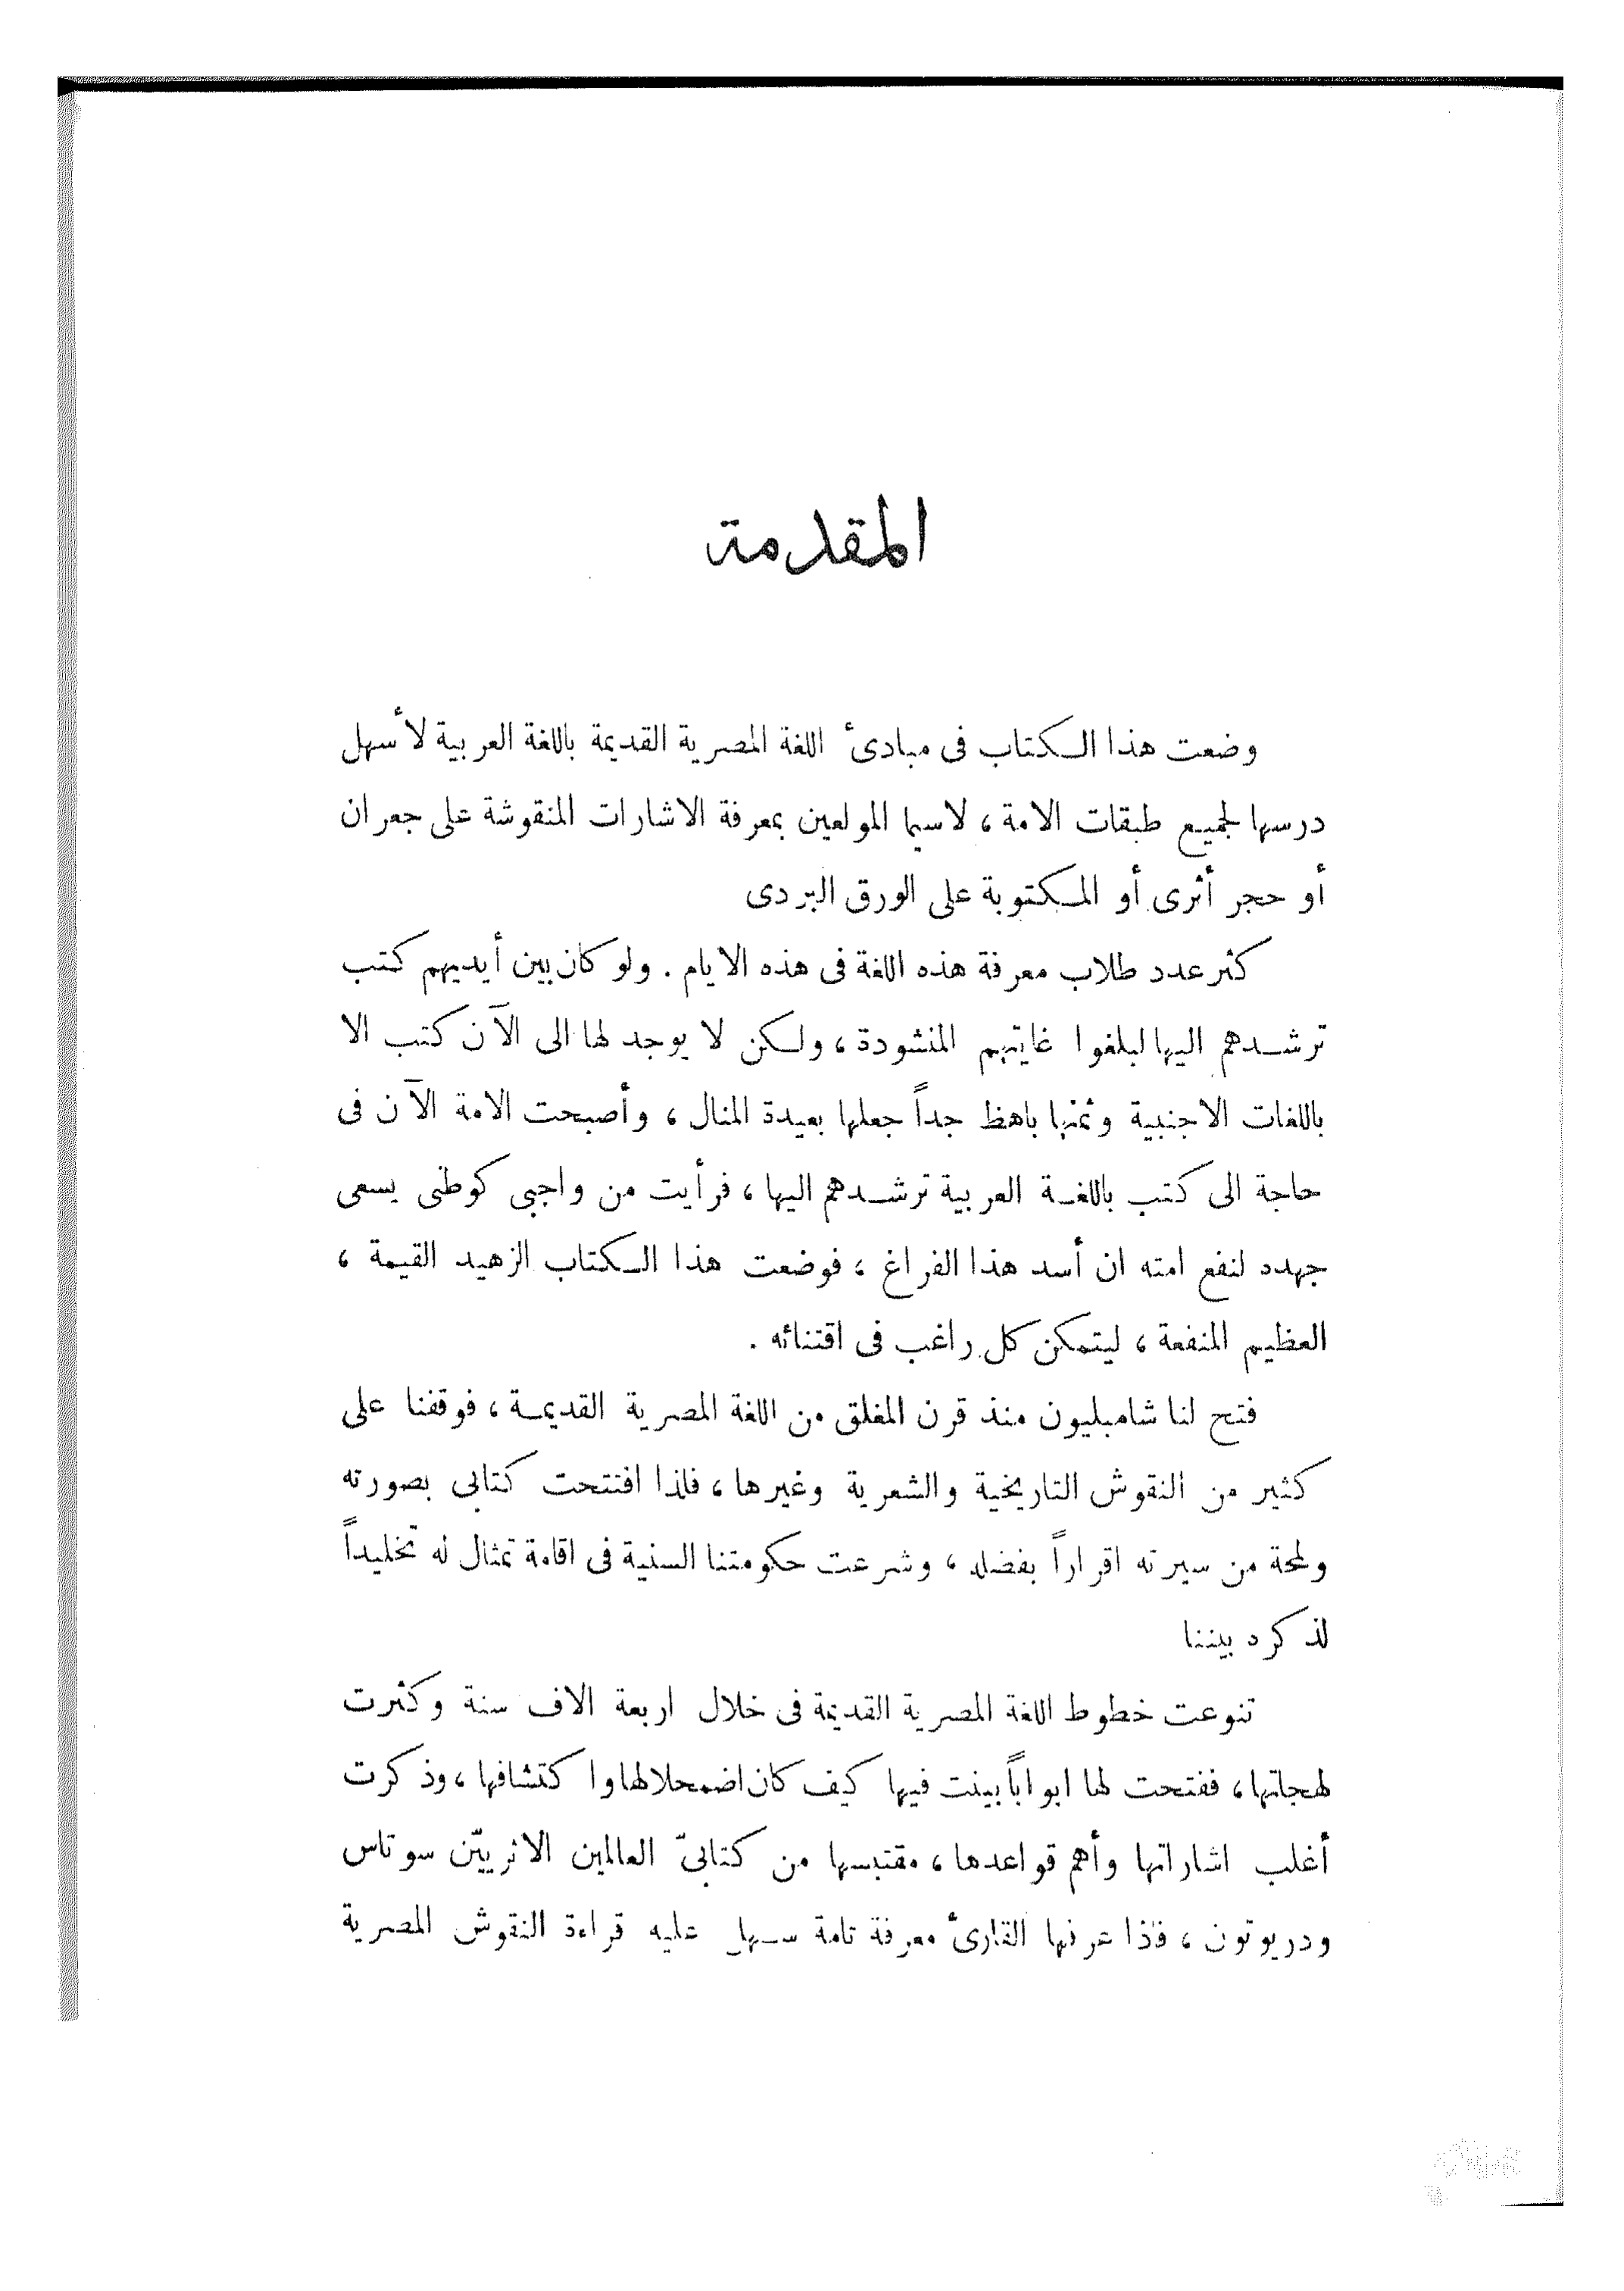 المقدمة
وضعت هذا الكتاب فى مبادىٔ اللغة المصرية القديمة باللغة العربية لأسهل
درسها لجميع طبقات الامة، لاسيما المولعين بمعرفة الاشارات المنقوشة على جعران
أو حجر أثرى أو المكتوبة على الورق البردى
كثر عدد طلاب معرفة هذه اللغة فى هذه الايام . ولو كان بين أيديهم كتب
ترشدهم اليها لبلغوا غايتهم المنشودة، ولكن لا يوجد لها الى الآن كتب الا
باللغات الاجنبية وثمنها باهظ جداً جعلها بعيدة المنال، وأصبحت الامة الآن فى
حاجة الى كتب باللغة العربية ترشدهم اليها، فرأيت من واجبى كوطنى يسعى
جهده لنفع امته ان أسد هذا الفراغ، فوضعت هذا الكتاب الزهيد القيمة،
العظيم المنفعة، ليتمكن كل راغب فى اقتنائه .
فتح لنا شامبليون منذ قرن المغلق من اللغة المصرية القديمة، فوقفنا على
كثير من النقوش التاريخية والشعرية وغيرها، فلذا افتتحت كتابى بصورته
ولمحة من سيرته اقراراً بفضله، وشرعت حكومتنا السنية فى اقامة تمثال له تخليداً
لذكره بيننا
تنوعت خطوط اللغة المصرية القديمة فى خلال اربعة الاف سنة وكثرت
لهجاتها، ففتحت لها ابواباً بينت فيها كيف كان اضمحلالها واكتشافها، وذكرت
أغلب اشاراتها وأهم قواعدها، مقتبسها من كتابىّ العالمين الاثريّين سوتاس
ودريوتون، فاذا عرفها القارىٔ معرفة تامة سهل عليه قراءة النقوش المصرية